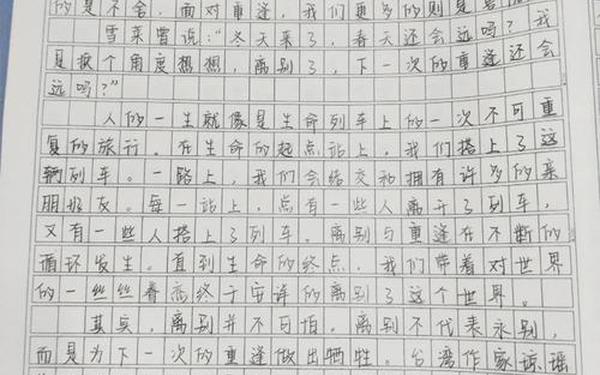 的是不舍，面对重逢，我们更多的则是喜
雪莱曾说：“冬天来了，春天还会远吗？”我
是换个角度想想，离别了，下一次的重逢还会
远吗？”
人的一生就像是生命列车上的一次不可重
复的旅行。在生命的起点站上，我们搭上了这
辆列车。一路上，我们会结交和拥有许多的亲
朋好友。每一站上，总有一些人离开了列车，
又有一些人搭上了列车。离别与重逢在不断的
循环发生。直到生命的终点，我们带着对世界
的一丝丝眷恋终于安详的离别了这个世界。
其实，离别并不可怕，离别不代表永别，
而是为下一次的重逢做出牺牲。台湾作家琼瑶